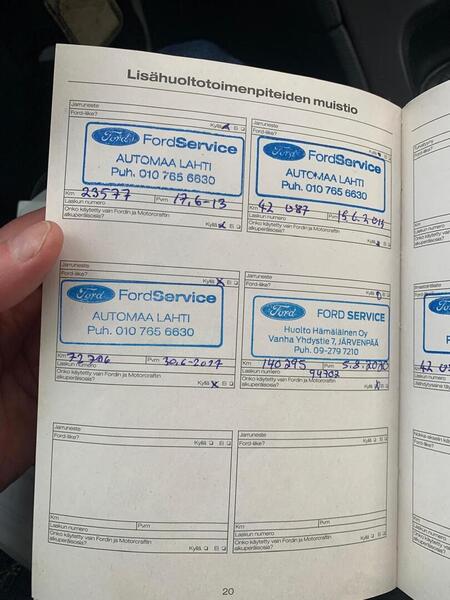 Lisähuoltotoimenpiteiden muistio
Jarruneste
Ford-liike?
Kyllä Ei
Ford FordService
AUTOMAA LAHTI
Puh. 010 765 6630
Km 23577 Pvm 17.6-13
Laskun numero
Onko käytetty vain Fordin ja Motorcraftin
alkuperäisosia?
Kyllä Ei
Jarruneste
Ford-liike?
Kyllä Ei
Ford FordService
AUTOMAA LAHTI
Puh. 010 765 6630
Km 42 087 Pvm
Laskun numero
Onko käytetty vain Fordin ja Motorcraftin
alkuperäisosia?
Kyllä Ei
Jarruneste
Ford-liike?
Kyllä X Ei
Ford FordService
AUTOMAA LAHTI
Puh. 010 765 6630
Km Pvm
Laskun numero
Onko käytetty vain Fordin ja Motorcraftin
alkuperäisosia?
Kyllä X Ei
Jarruneste
Ford-liike?
Kyllä Ei
Ford FORD SERVICE
Huolto Hämäläinen Oy
Vanha Yhdystie 7, JÄRVENPÄÄ
Puh. 09-279 7210
Km 140295 Pvm
Laskun numero 94702
Onko käytetty vain Fordin ja Motorcraftin
alkuperäisosia?
Kyllä Ei
Jarruneste
Ford-liike?
Kyllä Ei
Km Pvm
Laskun numero
Onko käytetty vain Fordin ja Motorcraftin
alkuperäisosia?
Kyllä Ei
Jarruneste
Ford-liike?
Kyllä Ei
Km Pvm
Laskun numero
Onko käytetty vain Fordin ja Motorcraftin
alkuperäisosia?
Kyllä Ei
20